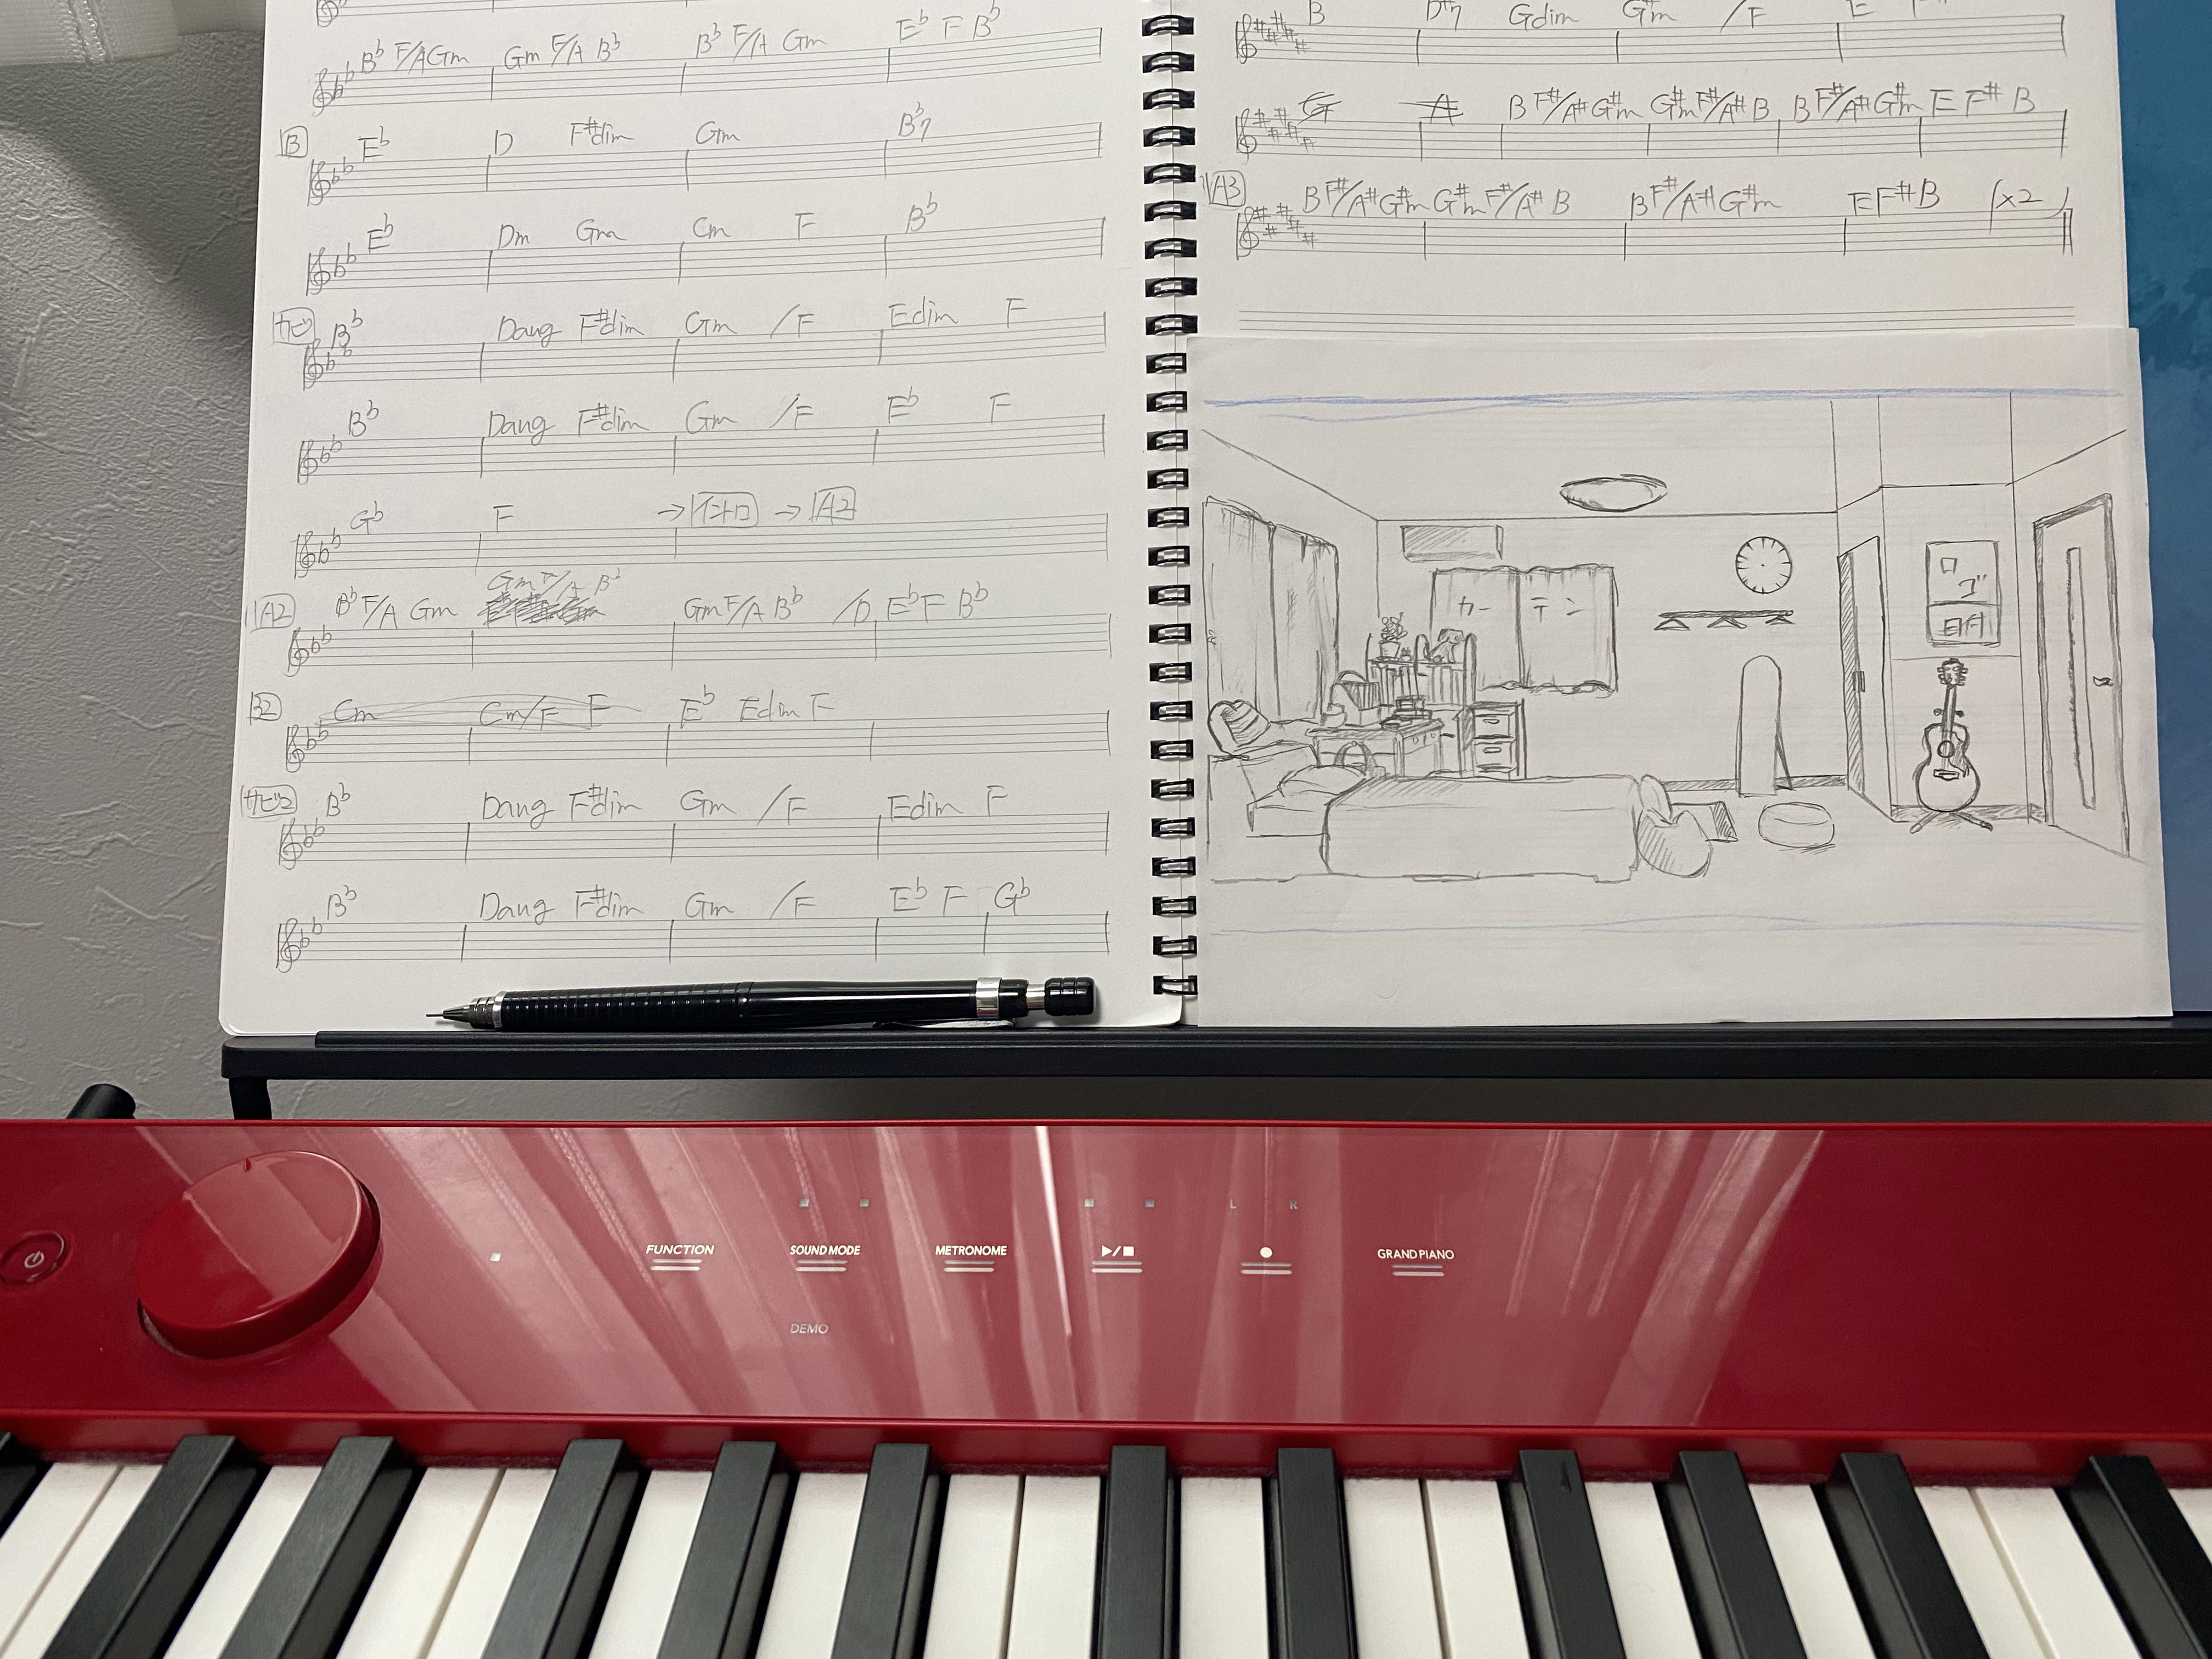 B♭ F/A Gm Gm F/A B♭ B♭ F/A Gm E♭ F B♭
B E♭ D F#dim Gm B♭7
E♭ Dm Gm Cm F B♭
サビ B♭ Daug F#dim Gm /F Edim F
B♭ Daug F#dim Gm /F E♭ F
G♭ F →イントロ →A2
Gm F/A B♭
A2 B♭ F/A Gm Gm F/A B♭ /D E♭ F B♭
B2 Cm Cm/F F E♭ Edim F
サビ2 B♭ Daug F#dim Gm /F Edim F
B♭ Daug F#dim Gm /F E♭ F G♭
B D#7 Gdim G#m /F E
G A B F#/A# G#m G#m F#/A# B B F#/A# G#m E F# B
A3 B F#/A# G#m G#m F#/A# B B F#/A# G#m E F# B (×2)
カーテン
ロゴ
L R
FUNCTION SOUND MODE METRONOME GRAND PIANO
DEMO